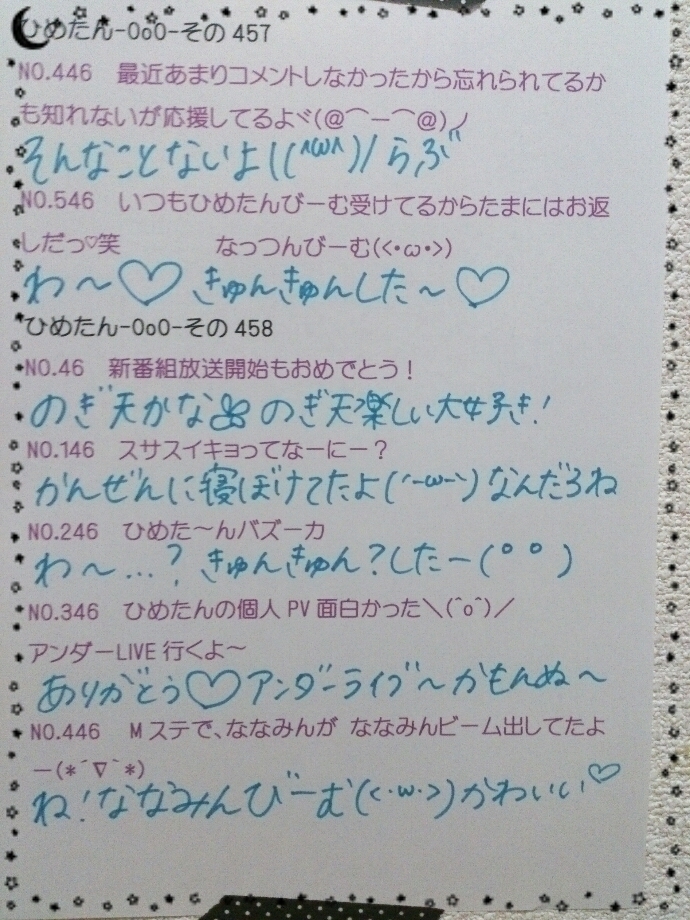 ひめたん-OoO-その 457
NO.446 最近あまりコメントしなかったから忘れられてるか
も知れないが応援してるよヾ(@⌒ー⌒@)ノ
そんなことないよ((^ω^)/らぶ
NO.546 いつもひめたんびーむ受けてるからたまにはお返
しだっ♡笑 なっつんびーむ(<・ω・>)
わ〜♡きゅんきゅんした〜♡
ひめたん-OoO-その 458
NO.46 新番組放送開始もおめでとう！
のぎ天かな のぎ天楽しい大好き！
NO.146 スサスイキョってなーにー？
かんぜんに寝ぼけてたよ(´-ω-`)なんだろね
NO.246 ひめた〜んバズーカ
わ〜…？きゅんきゅん？したー(° °)
NO.346 ひめたんの個人 PV 面白かった＼(^o^)／
アンダーLIVE 行くよ〜
ありがとう♡アンダーライブ〜かもんぬ〜
NO.446 M ステで、ななみんが ななみんビーム出してたよ
ー(*´∇`*)
ね！ななみんびーむ(<・ω・>)かわいい♡